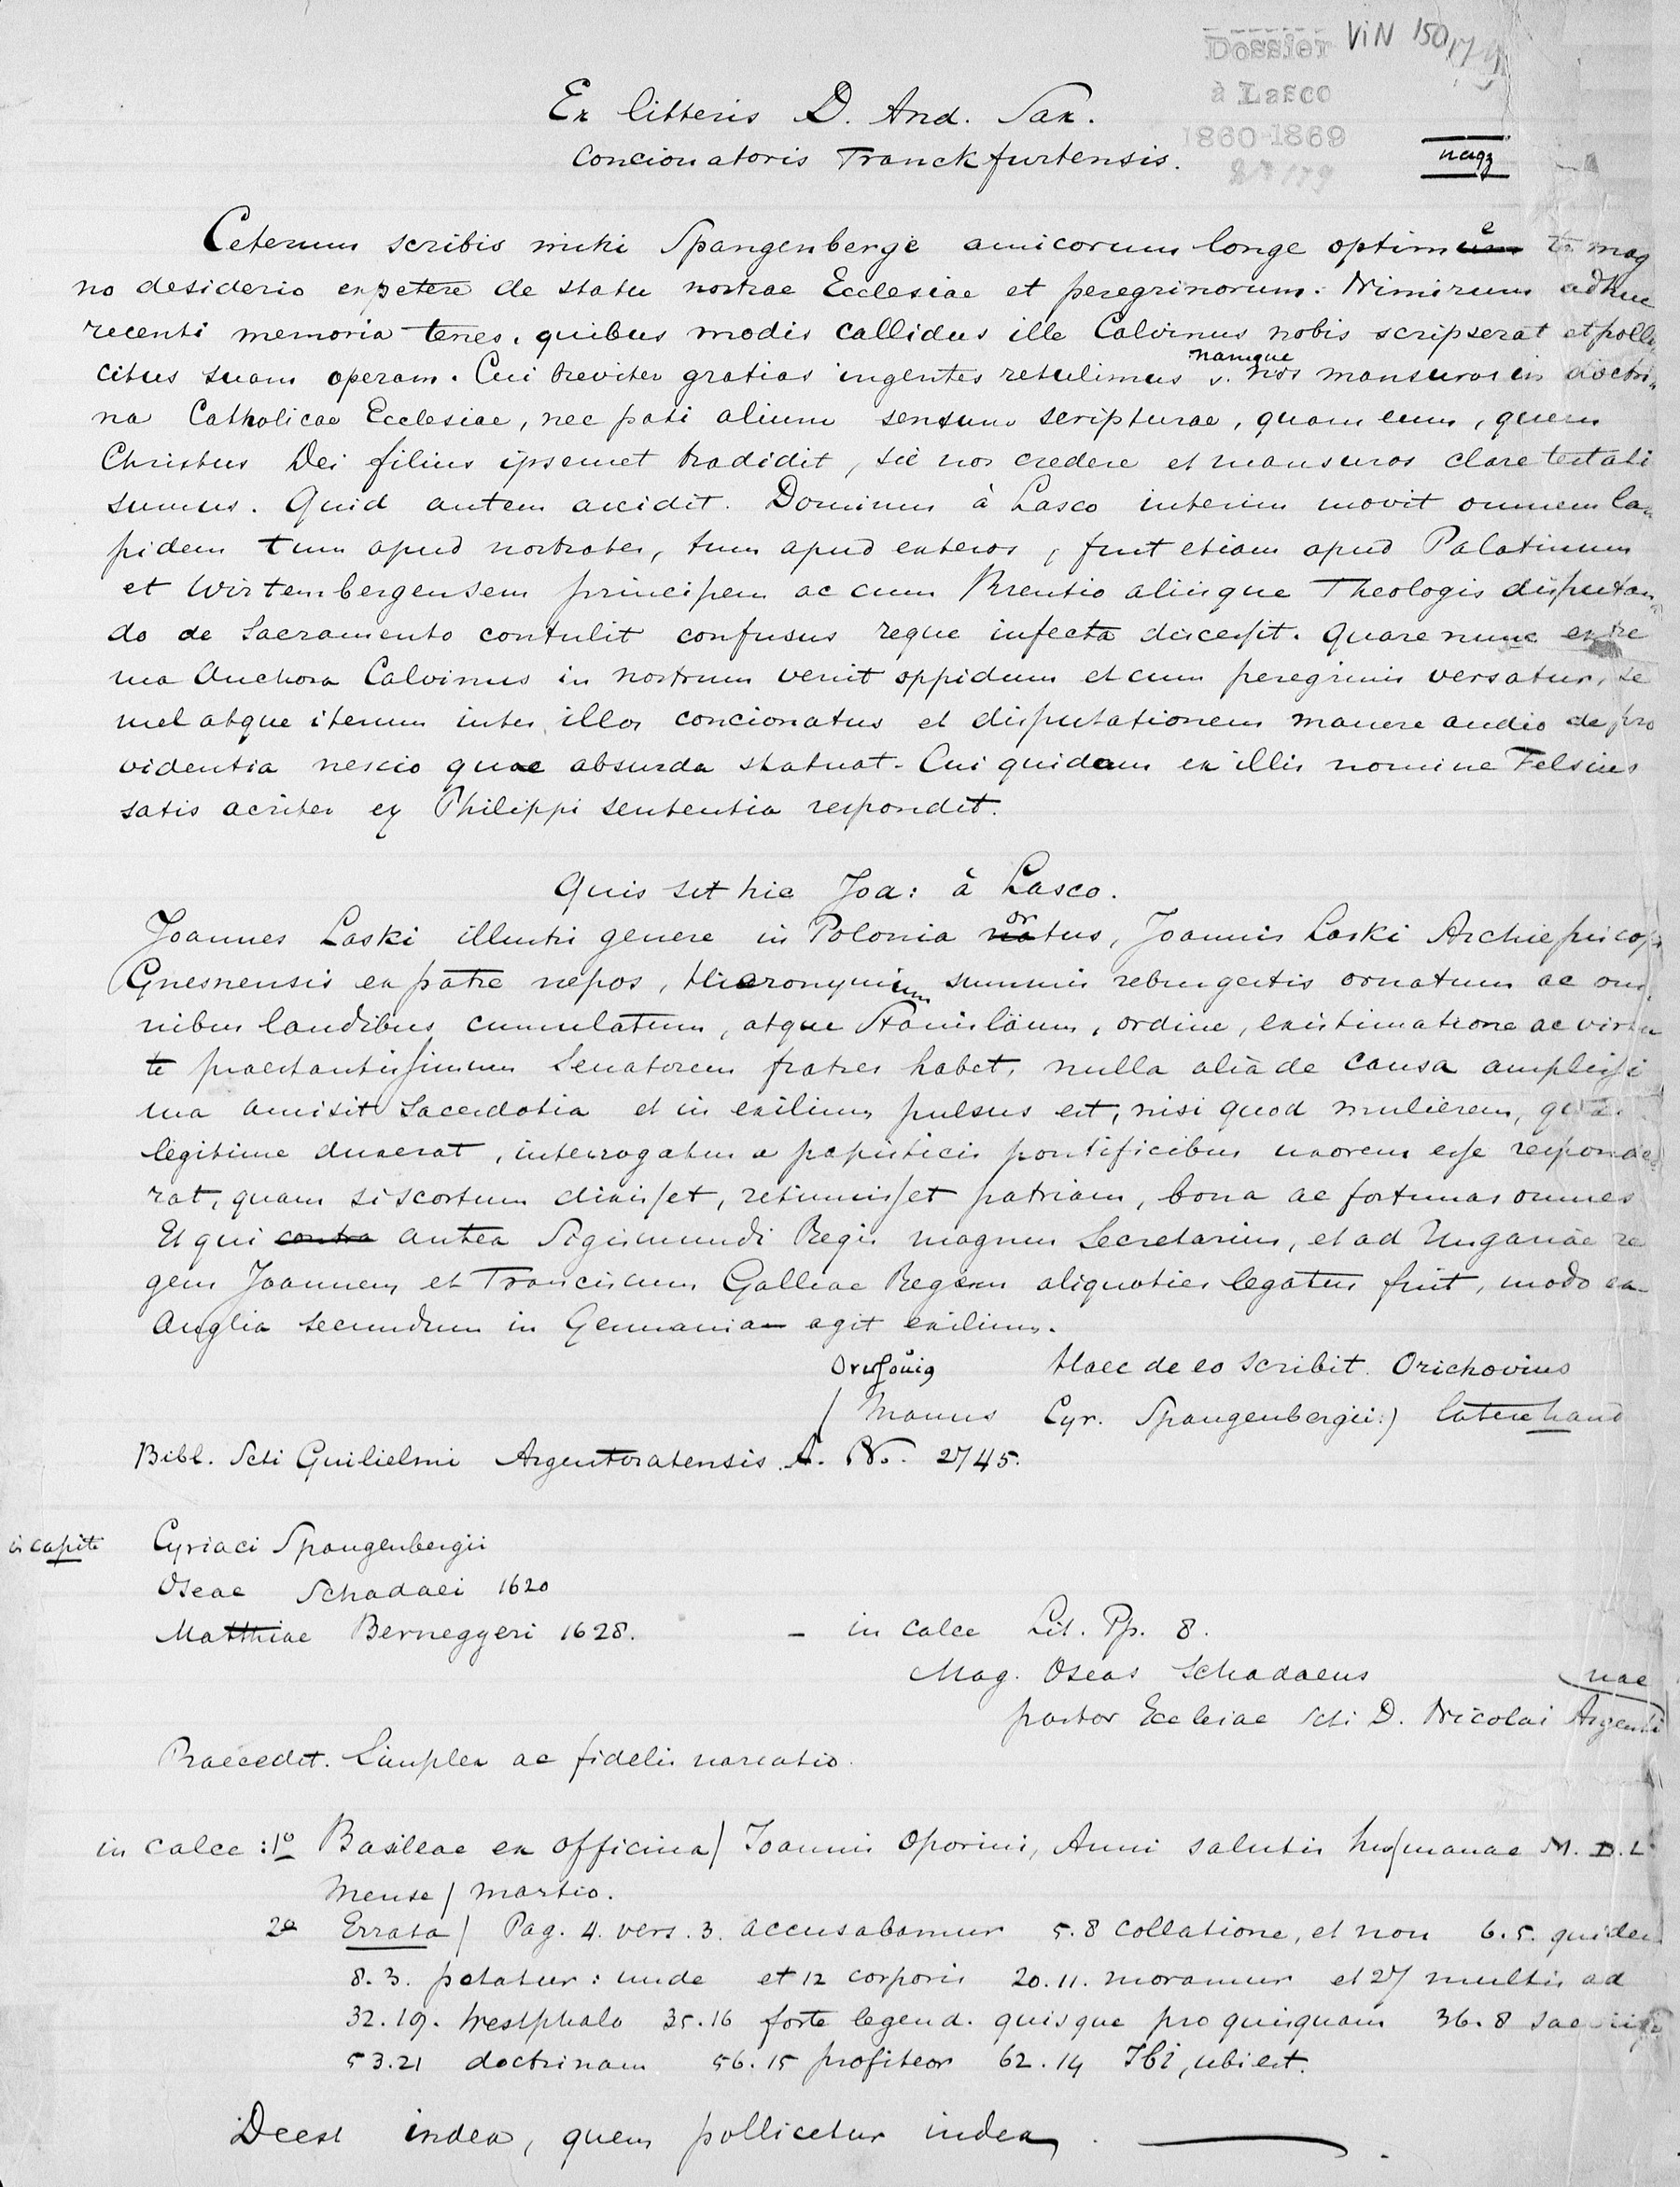 Dossier ViN 150
à Lasco
1860-1869
Ex litteris D. And. Sax.
Concionatoris Franckfurtensis.
Ceterum scribis mihi Spangenberge amicorum longe optime te mag
no desiderio expetere de statu nostrae Ecclesiae et peregrinorum. Nimirum adhuc
recenti memoria tenes, quibus modis callidus ille Calvinus nobis scripserat et polli
citus suam operam. Cui breviter gratias ingentes retulimus namque nos mansuros in doctri
na Catholicae Ecclesiae, nec pati alium sensum scripturae, quam eum, quem
Christus Dei filius ipsemet tradidit, sic nos credere et mansuros clare testati
sumus. Quid autem accidit. Dominus à Lasco interim movit omnem la
pidem tum apud nostrates, tum apud exteros, fuit etiam apud Palatinum
et Wirtembergensem principem ac cum Brentio aliisque Theologis disputan
do de Sacramento contulit confusus reque infecta discessit. Quare nunc extre
ma Anchora Calvinus in nostrum venit oppidum et cum peregrinis versatur, se
mel atque iterum inter illos concionatus et disputationem manere audio de pro
videntia nescio quae absurda statuat. Cui quidam ex illis nomine Felsius
satis acriter ex Philippi sententia respondit.
Quis sit hic Joa: à Lasco.
Joannes Laski illustri genere in Polonia ortus, Joannis Laski Archiepiscopi
Gnesnensis ex patre nepos, Hieronymum summis rebus gestis ornatum ac om
nibus laudibus cumulatum, atque Stanislaum, ordine, existimatione ac virtu
te praestantissimum Senatorem fratres habet, nulla alia de causa amplissi
ma amisit Sacerdotia et in exilium pulsus est, nisi quod mulierem, quam
legitime duxerat, interrogatus a papisticis pontificibus uxorem esse responde
rat, quam si scortum dixisset, retinuisset patriam, bona ac fortunas omnes
Et qui contra antea Sigismundi Regis magnus Secretarius, et ad Ungariae re
gem Joannem et Franciscum Galliae Regem aliquoties legatus fuit, modo ex
Anglia secundum in Germania agit exilium.
Haec de eo scribit Orichovius
(Manus Cyr. Spangenbergii:) latere hand
Bibl. Scti Guilielmi Argentoratensis A. N. 2745.
in capite Cyriaci Spangenbergii
Oseae Schadaei 1620
Matthiae Berneggeri 1628. – in calce Lit. Pp. 8.
Mag. Oseas Schadaeus
pastor Ecclesiae Scti D. Nicolai Argenti
nae
Praecedit. Simplex ac fidelis narratio.
in calce: 1º Basileae ex officina / Joannis Oporini, Anni salutis hu/manae M. D. L
Mense / Martio.
2º Errata / Pag. 4. vers. 3. accusabamur 5.8 collatione, et non 6.5. quidem
8.3. petatur: unde et 12 corporis 20.11. moramur et 27 multis ad
32.19. Westphalo 35.16 forte legend. quisque pro quisquam 36.8
53.21 doctrinam 56.15 profiteor 62.14 Ibi, ubi est.
Deest index, quem pollicetur index.